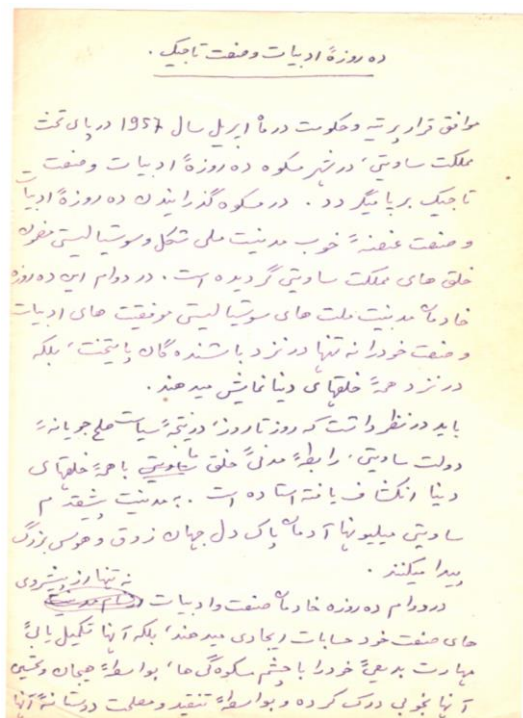 ده روزهٔ ادبیات و صنعت تاجیک.
موافق قرار پرتیه و حکومت در ماه اپریل سال 1957 در پای تخت
مملکت ساویتی، در شهر مسکوه ده روزهٔ ادبیات و صنعت
تاجیک برپا میگردد. در مسکوه گذرانیدن ده روزهٔ ادبیات
و صنعت عنعنهٔ خوب مدنیت ملی شکل و سوتسیالیستی مضمون
خلق های مملکت ساویتی گردیده است. در دوام این ده روزه
خادمان مدنیت ملت های سوتسیالیستی موفقیت های ادبیات
و صنعت خود را نه تنها در نزد باشنده گان پایتخت، بلکه
در نزد همهٔ خلقهای دنیا نمایش میدهند.
باید در نظر داشت که روز تا روز، در نتیجهٔ سیاست صلح جویانهٔ
دولت ساویتی، رابطهٔ مدنی خلق ساویتی با همهٔ خلقهای
دنیا انکشاف یافته استاده است. به مدنیت پیشقدم
ساویتی میلیونها آدمان پاک دل جهان ذوق و هوس بزرگ
پیدا میکنند.
نه تنها از پیشروی
در دوام ده روزه خادمان صنعت و ادبیات
های صنعت خود حسابات ایجادی میدهند، بلکه آنها تکمیل یابی
مهارت بدیعی خود را با چشم مسکوه گی ها، بواسطهٔ هیجان و تحسین
آنها بخوبی درک کرده و بواسطهٔ تنقید و مصلحت دوستانهٔ آنها